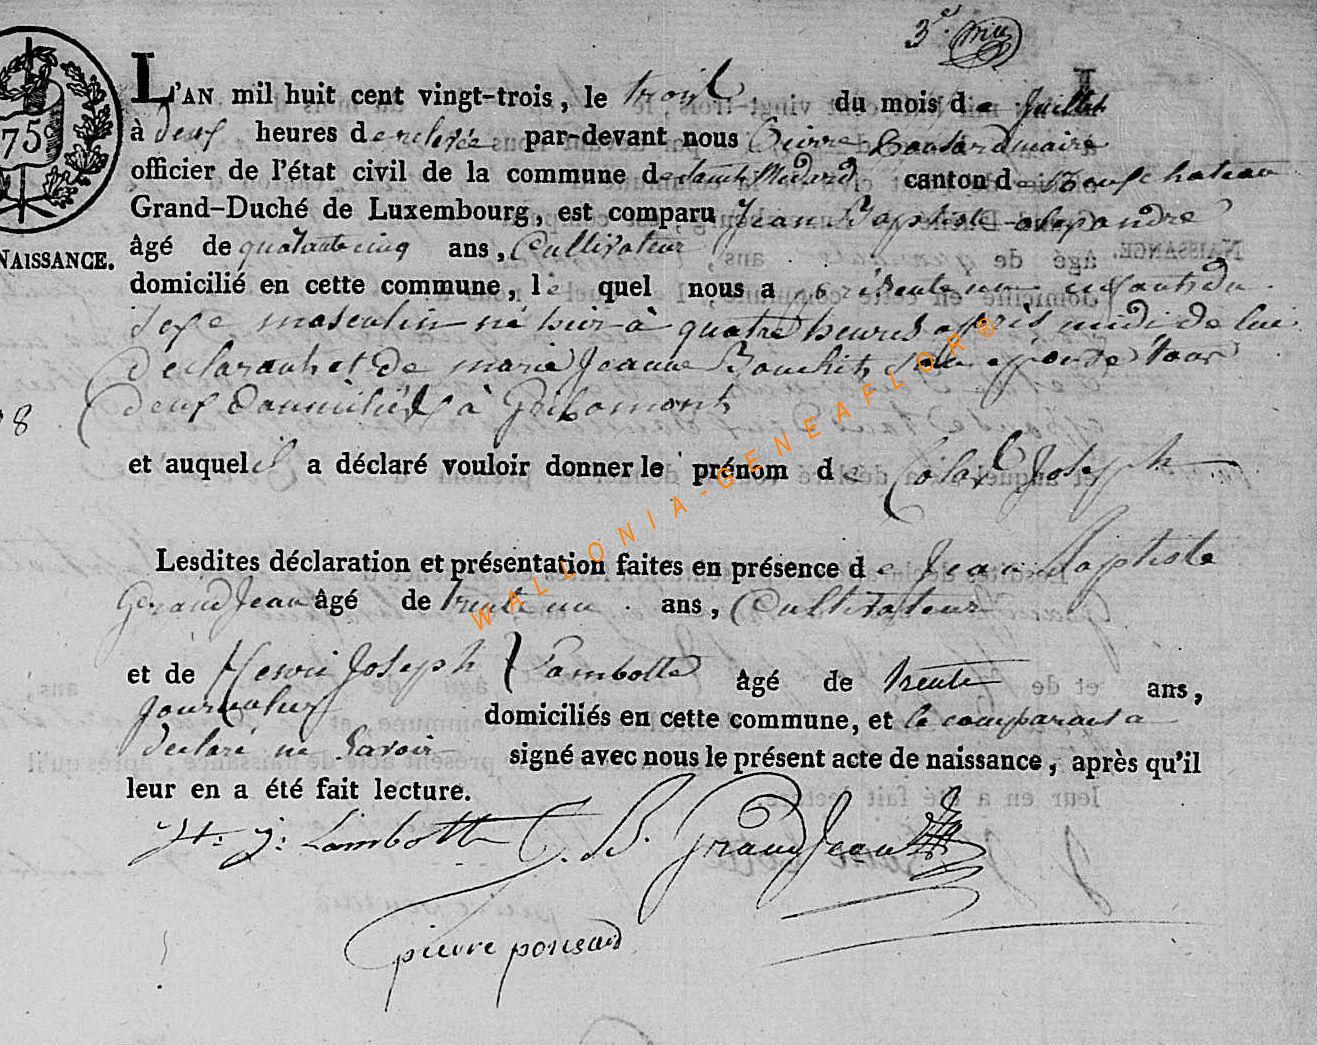 3e.
75
L'AN mil huit cent vingt-trois, le trois du mois de Juillet
à deux heures de relevée par-devant nous Pierre Ponsard maire
officier de l'état civil de la commune de Saint Médard canton de Neufchateau
Grand-Duché de Luxembourg, est comparu Jean Baptiste alexandre
NAISSANCE.
âgé de quarante cinq ans, Cultivateur
domicilié en cette commune, le quel nous a présenté un enfant du
Sexe masculin né hier à quatre heures après midi de lui
Declarant et de marie Jeanne Bouchit Son epouse tous
deux Domiciliés à Gribomont
8
et auquel il a déclaré vouloir donner le prénom de Colas Joseph
Lesdites déclaration et présentation faites en présence de Jean Baptiste
GrandJean âgé de trente un ans, Cultivateur
et de Henri Joseph Lambotte âgé de trente ans,
Journalier domiciliés en cette commune, et le comparant a
declaré ne Savoir signé avec nous le présent acte de naissance, après qu'il
leur en a été fait lecture.
H: J: Lambotte J. B. GrandJean
pierre ponsard
WALLONIA-GENEAFLOR®